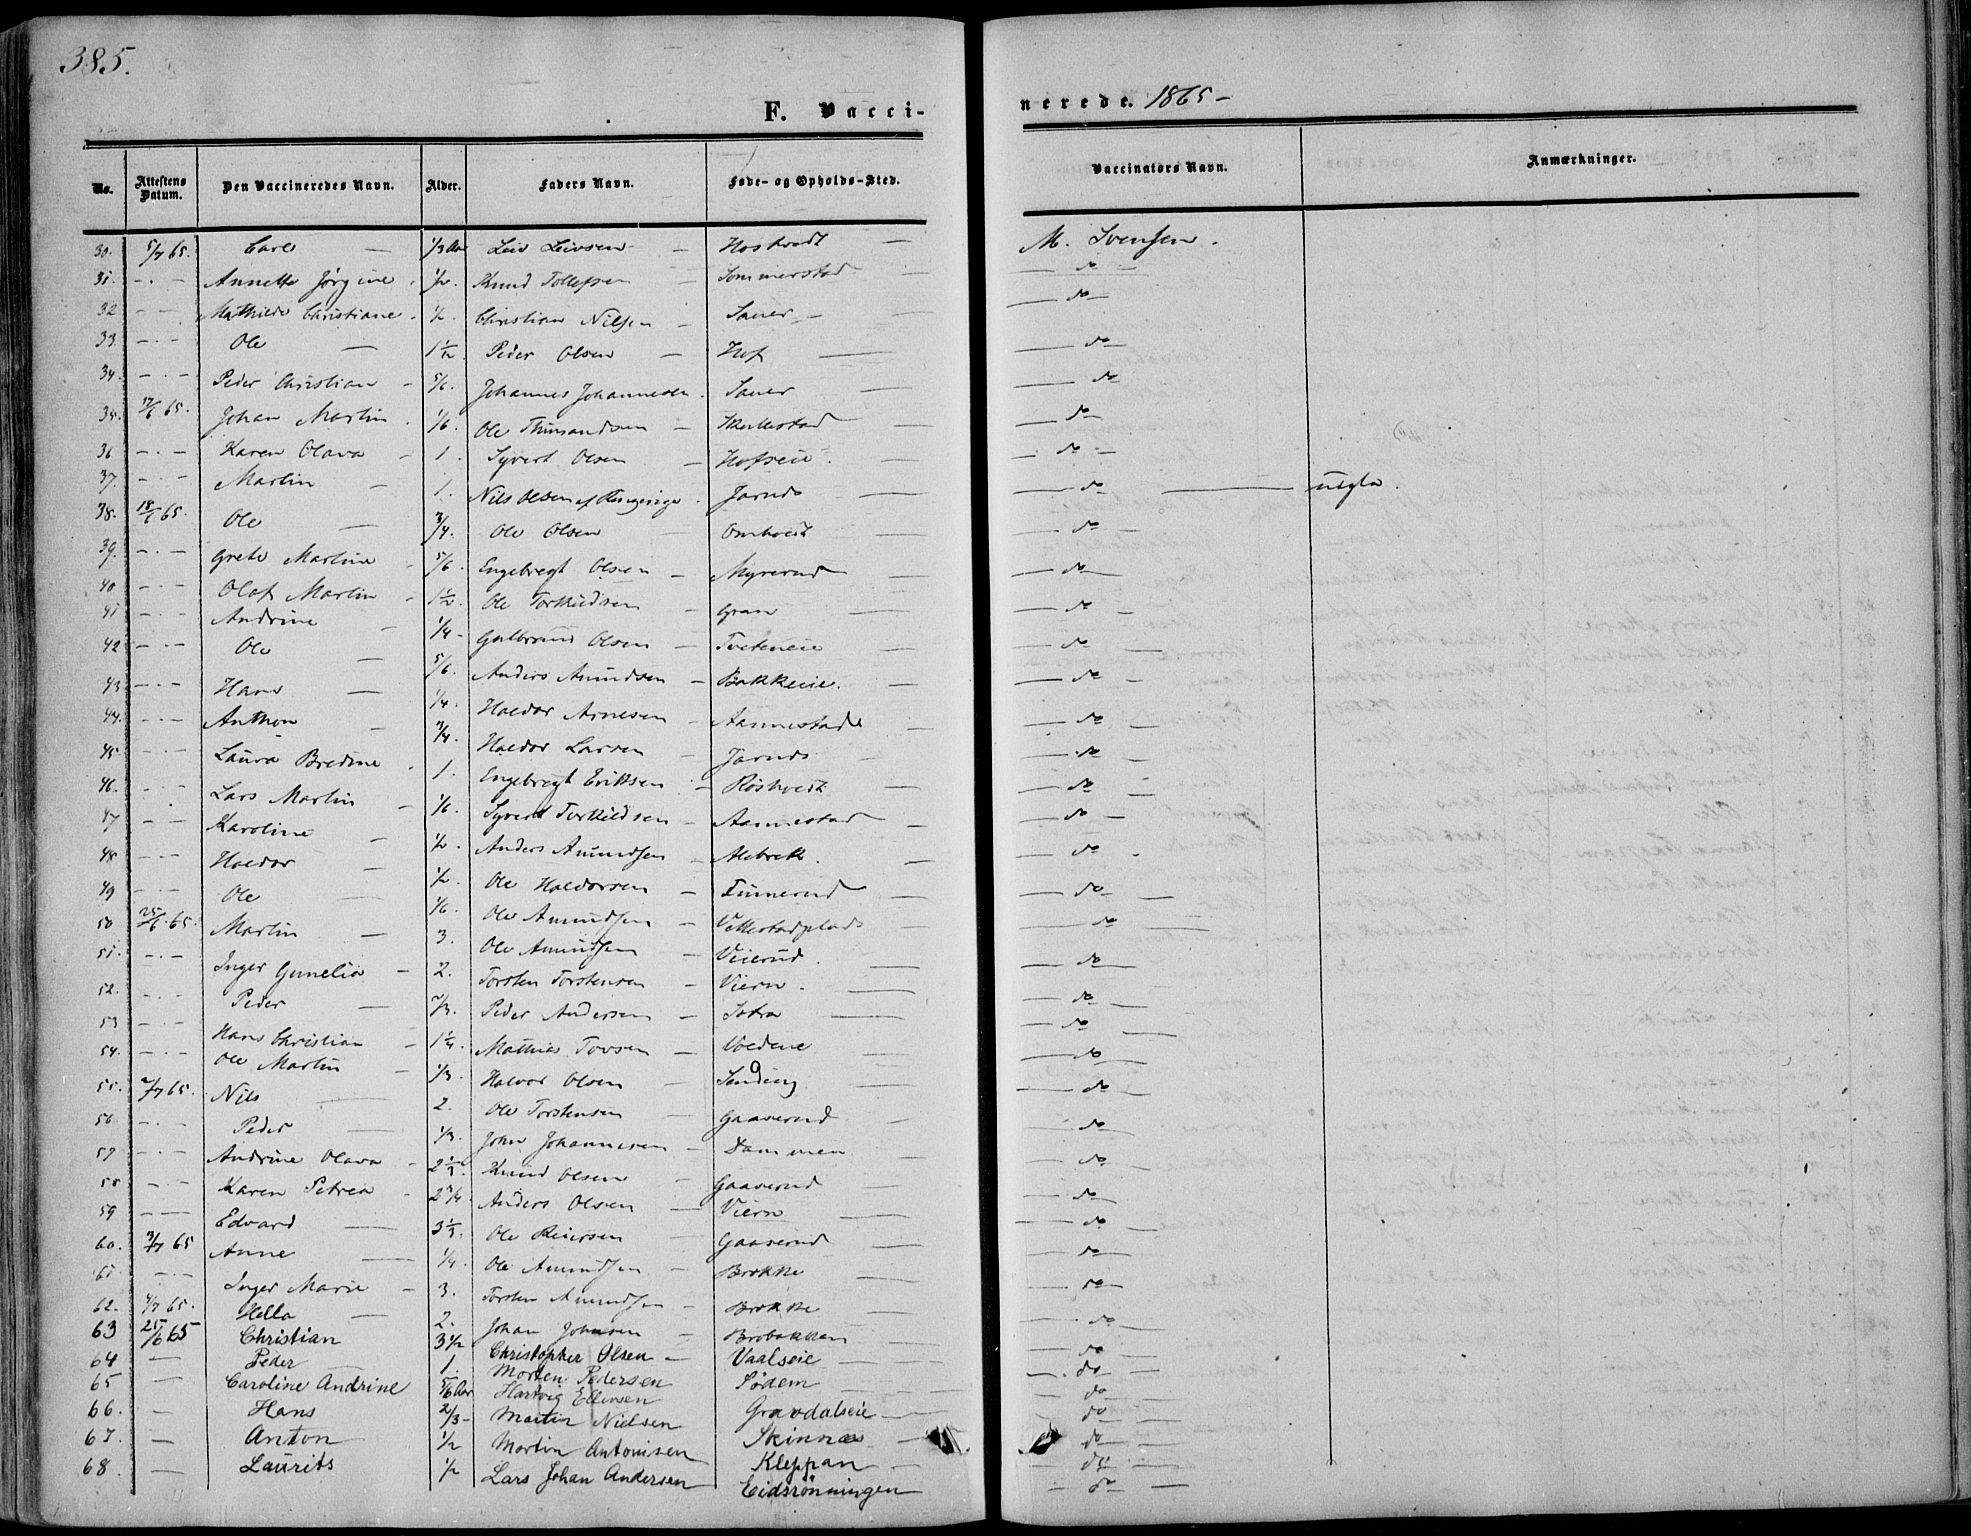 385.
F. Vacci-
nerede. 1865 –
No. Attestens Datum. Den Vaccineredes Navn. Alder. Faders Navn. Føde- og Opholds-Sted. Vaccinators Navn. Anmærkninger.
30. 5/7 65. Carl — 1/3 Aar Leiv Leivsen — — M. Svensen.
31. – · – Annette Jørgine. 1/2. Knud Tollefsen — Sommerstad — do
32 – – Mathilde Christiane. 1/2. Christian Nilsen — Sauer — do
33. – · – Ole — 1 1/2 Peder Olsen — Hof — do
34. – · – Peder Christian – 5/6. Johannes Johannesen. Sauer — do
35. 17/6 65. Johan Martin. 1/6. Ole — Skullestad — do
36 – · – Karen Olava – 1. Syvert Olsen — Hofseie. — do
37. – · – Martin – 1. Nils Olsen af Ringerige. Jarnds — do — uægte.
38. 18/6 65. Ole — 3/4. Ole Olsen — Omholdt — do
39. – · – Grete Martine – 5/6. Engebregt Olsen — Myrerud — do
40 – · – Olaf Martin – 1 1/2. Ole Torkildsen — Gran — do
41 – · – Andrine – 1/4 – Gulbrand Olsen — Tveteneie — do
42 – · – Ole — 5/6. Anders Amundsen — Bakkeeie. — do
43 – · – Hans — 1/4. Haldor Arnesen — Aannestad — do
44. – · – Anthon – 3/4. Haldor Larsen — Jarnds — do
45. – · – Laura Bredine. 1. Engebregt Eriksen. — Röshvedt — do
46. – · – Lars Martin – 1/6. Syvert Torkildsen — Aannestad — do
47 – – Karoline – 1/2. Anders Amundsen — Alebrek. — do
48 – · – Haldor – 1/2. Ole Haldorsen — Finnerud — do
49 – · – Ole — 1/6. Ole Amundsen — Vettestadplads — do
50 25/6 65. Martin — 3. Ole Amundsen — Veierud. — do
51. – · – Inger Gunelia – 2. Torsten Torstensen — Viern. — do
52. – · – Peder — 2/3. Peder Andersen — Sotra — do
53 – · – Hans Christian – 1 1/4. Mathias Tovsen — Voldene — do
54. – · – Ole Martin – 1/3. Halvor Olsen — Sanding — do
55. 2/7 65. Nils — 2. Ole Torstensen — Gaaserud — do
56. – · – Peder — 1/3. John Johannesen — Dammen — do
57 – · – Andrine Olava – 2 1/3. Knud Olsen — Gaaserud — do
58 – · – Karen Petrea – 2 3/4. Anders Olsen — Viern — do
59 – – Edvard — 3 1/3. Ole Reiersen — Gaaserud — do
60. 3/7 65 Anne — 1/4. Ole Amundsen — Brokke — do
61. – · – Inger Marie – 3. Torsten Amundsen — Brokke — do
62. 4/7 65. Hella — 2. Johan Johnsen — Brobakken — do
63 25/6 65 Christian 3 1/2 Christopher Olsen — Vaalseie — do
64 — Peder — 1. Morten Pedersen Södem — do
65 — Caroline Andrine 5/6 Aar Hartvig Ellevsen Gravdalseie — do
66. — Hans 2/3 – Martin Nielsen Skinnæs — do
67. — Anton 1/2 Martin Antonisen Kleppan — do
68. — Laurits 1/2 Lars Johan Andersen Eidsrönningen — do